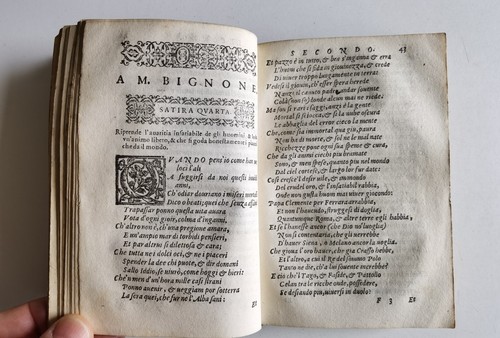 A M. BIGNONE
SATIRA QVARTA.
Riprende l'auaritia insatiabile de gli huomini
uo'animo libero, & che si goda honestamente
che da il mondo.
QVANDO pens'io come han
loci l'ali
A fuggirsi da noi questi
anni,
Ch'odor doniamo i miseri mortali
Dico o beati; che senza
Trapassar ponno questa vita auara
Vota d'ogni gioir, colma d'inganni.
Ch'altro non è, ch'una prigione amara,
E un'ampio mar di torbidi pensieri,
Et par altrui sì dilettosa & cara;
Che tutta ne i dolci ocî, & ne i piaceri
Spender la dee chi puote, & dir domani
Sallo Iddio, se uiuiò, come hoggi e hieri:
Che'n men d'un'hora mille casi strani
Ponno auenir, & ueggiam por sotterra
La sera quei, che fur ne l'Alba sani:
SECONDO. 43
Et pazzo è in tutto, & ben s'inganna & erra
L'huom che si fida in giouinezza, & crede
Di uiuer troppo lungamente in terra:
Vedesi il giouin, ch'esser spera herede
Nanzi il canuto padre andar souente
Colà (non so) donde alcun mai ne riede:
Ma son sì rari i saggi, anzi è la gente
Mortal sì sì boccia, & sì la nube oscura
Le abbaglia del error cieco la mente
Che, come sia immortal qua giu, paura
Non ha di morte, & sol ne le mal nate
Ricchezze pon ogni sua speme e cura:
Che da gli animi ciechi piu bramate
Sono, & men spese, quanto piu nel mondo
Dal ciel cortese, & largo lor fur date:
Così cresce'l desir vile, & immondo
Del crudel oro, & l'insatiabil rabbia,
Onde non gusta huom mai uiuer giocondo:
Papa Clemente per Ferrara arrabbia,
Et non l'hauendo, struggesi di doglia,
Quantunque Roma, & altre terre egli habbia,
Et se l'hauesse ancor (che Dio no'l uoglia)
Non si contentaria, che gli uerrebbe
D'hauer Siena, o Melano ancor la uoglia.
Che giunta l'oro hauer, che gia Crasso hebbe,
Et l'altro, a cui il Re del fiume Polo
Tanto ne die, ch'a lui souente increbbe?
E ciò che'l Tago, & l'oste, & Pattolo
Celan tra le ricche onde, possedere,
Se desiando piu, uiuersi in duolo:
F 3 Et